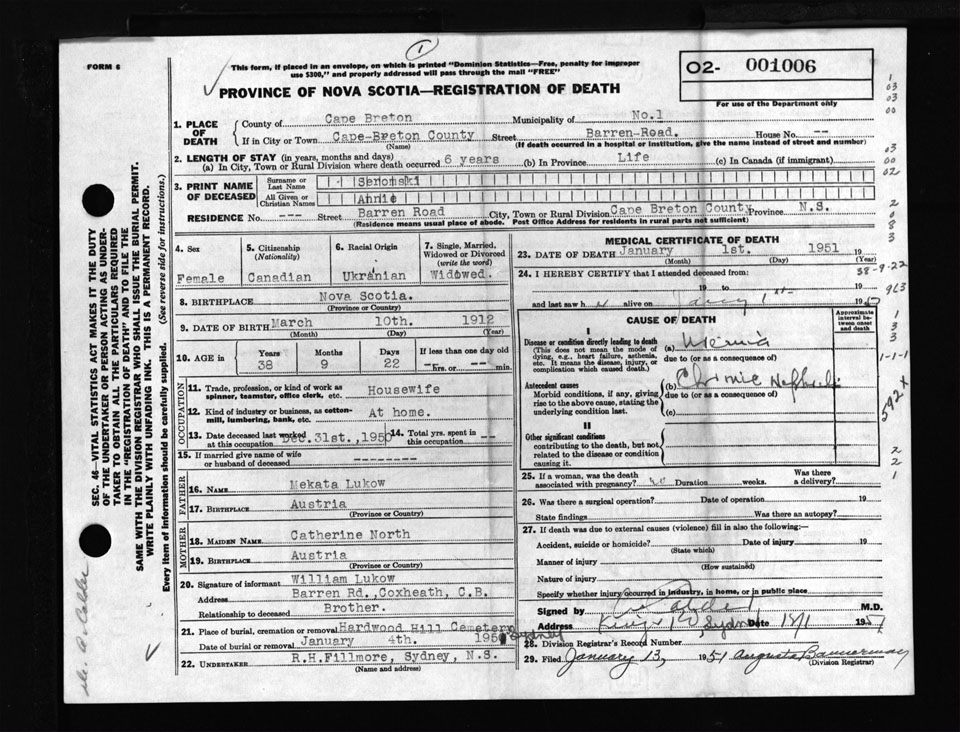 FORM 6
1
This form, if placed in an envelope, on which is printed "Dominion Statistics—Free, penalty for improper
use $300," and properly addressed will pass through the mail "FREE"
PROVINCE OF NOVA SCOTIA—REGISTRATION OF DEATH
O2- 001006
For use of the Department only
1. PLACE OF DEATH
County of Cape Breton Municipality of No.1
If in City or Town Cape-Breton County Street Barren-Road. House No. --
(Name) (If death occurred in a hospital or institution, give the name instead of street and number)
2. LENGTH OF STAY (in years, months and days)
(a) In City, Town or Rural Division where death occurred 6 years (b) In Province Life (c) In Canada (if immigrant)
3. PRINT NAME OF DECEASED
Surname or Last Name Seromski
All Given or Christian Names Annie
RESIDENCE No. --- Street Barren Road City, Town or Rural Division Cape Breton County Province N.S.
(Residence means usual place of abode. Post Office Address for residents in rural parts not sufficient)
4. Sex
Female
5. Citizenship (Nationality)
Canadian
6. Racial Origin
Ukranian
7. Single, Married, Widowed or Divorced (write the word)
Widowed.
8. BIRTHPLACE Nova Scotia.
(Province or Country)
9. DATE OF BIRTH March 10th. 1912
(Month) (Day) (Year)
10. AGE in Years Months Days If less than one day old
38 9 22 --hrs. or -- min.
OCCUPATION
11. Trade, profession, or kind of work as spinner, teamster, office clerk, etc. Housewife
12. Kind of industry or business, as cotton-mill, lumbering, bank, etc. At home.
13. Date deceased last worked at this occupation Dec.31st.,1950
14. Total yrs. spent in this occupation --
15. If married give name of wife or husband of deceased --------
FATHER
16. NAME Mekata Lukow
17. BIRTHPLACE Austria
(Province or Country)
MOTHER
18. MAIDEN NAME Catherine North
19. BIRTHPLACE Austria
(Province or Country)
20. Signature of informant William Lukow
Address Barren Rd.,Coxheath, C.B.
Relationship to deceased Brother.
21. Place of burial, cremation or removal Hardwood Hill Cemetery Sydney
Date of burial or removal January 4th. 195
22. UNDERTAKER R.H.Fillmore, Sydney, N.S.
(Name and address)
MEDICAL CERTIFICATE OF DEATH
23. DATE OF DEATH January 1st. 1951 19
(Month) (Day) (Year)
24. I HEREBY CERTIFY that I attended deceased from:
19 to 19
and last saw h alive on 19
CAUSE OF DEATH
Approximate interval between onset and death
I
Disease or condition directly leading to death
(This does not mean the mode of dying, e.g., heart failure, asthenia, etc. It means the disease, injury, or complication which caused death.)
(a) Uremia
due to (or as a consequence of)
Antecedent causes
Morbid conditions, if any, giving rise to the above cause, stating the underlying condition last.
(b) Chronic Nephritis
due to (or as a consequence of)
(c)
II
Other significant conditions
contributing to the death, but not related to the disease or condition causing it.
25. If a woman, was the death associated with pregnancy? no Duration weeks. Was there a delivery?
26. Was there a surgical operation? Date of operation 19
State findings Was there an autopsy?
27. If death was due to external causes (violence) fill in also the following:—
Accident, suicide or homicide? Date of injury 19
(State which)
Manner of injury
(How sustained)
Nature of injury
Specify whether injury occurred in industry, in home, or in public place
Signed by M.D.
Address Sydney Date 13/1 195
28. Division Registrar's Record Number
29. Filed January 13, 1951 Augusta Bannerman
(Division Registrar)
SEC. 46—VITAL STATISTICS ACT MAKES IT THE DUTY
OF THE UNDERTAKER OR PERSON ACTING AS UNDER-
TAKER TO OBTAIN ALL THE PARTICULARS REQUIRED
IN THE "REGISTRATION OF DEATH" AND TO FILE THE
SAME WITH THE DIVISION REGISTRAR WHO SHALL ISSUE THE BURIAL PERMIT.
WRITE PLAINLY WITH UNFADING INK. THIS IS A PERMANENT RECORD.
Every item of information should be carefully supplied. (See reverse side for instructions.)
1
03
03
00
03
00
02
2
0
8
3
38-9-22
963
1
3
3
1-1-1
592x
2
2
1